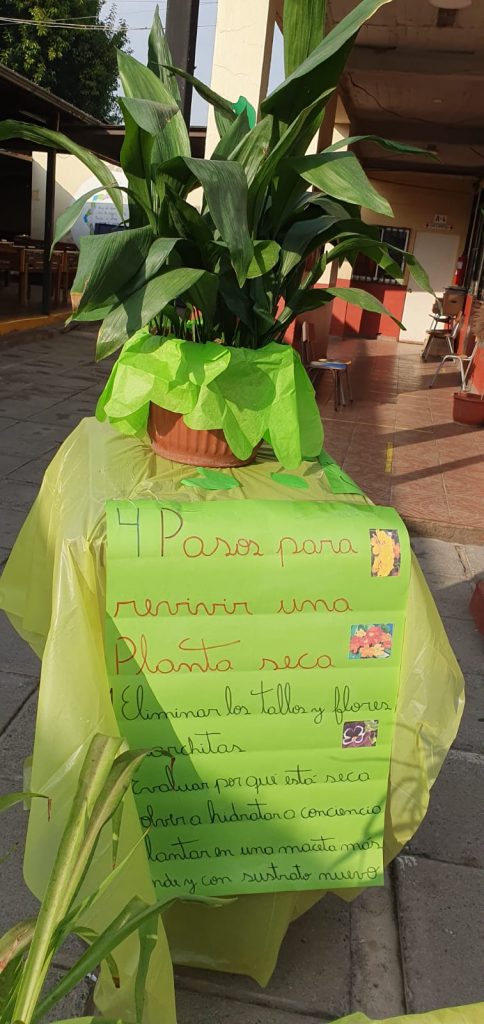 4 Pasos para
revivir una
Planta seca
1 Eliminar los tallos y flores
architas
Evaluar por que está seca
olver a hidratar a conciencia
lantar en una maceta mas
nde y con sustrato nuevo
A-4